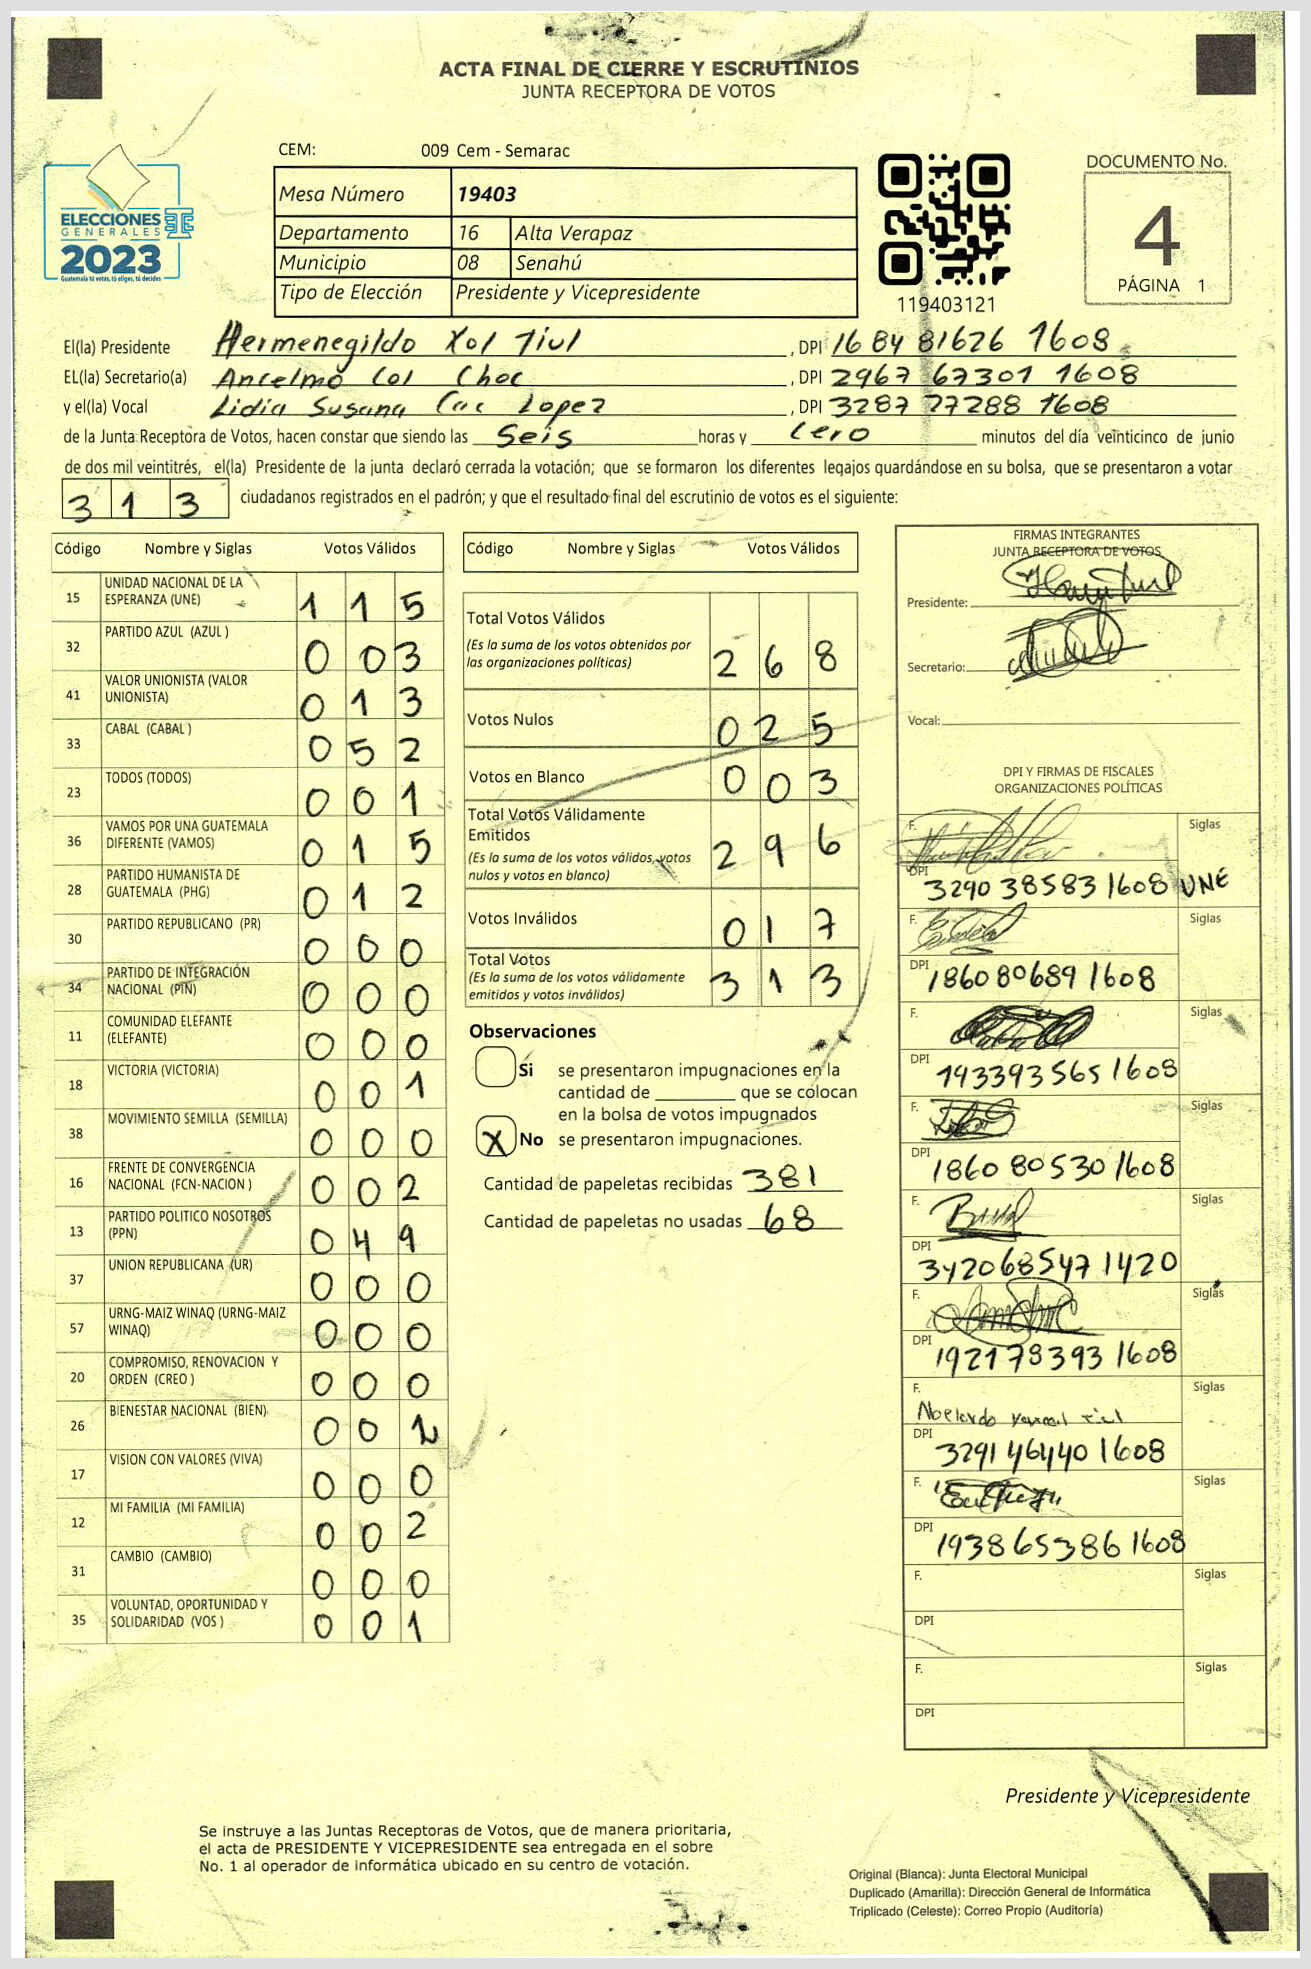 ACTA FINAL DE CIERRE Y ESCRUTINIOS
JUNTA RECEPTORA DE VOTOS
CEM: 009 Cem - Semarac
Mesa Número 19403
Departamento 16 Alta Verapaz
Municipio 08 Senahú
Tipo de Elección Presidente y Vicepresidente
ELECCIONES
GENERALES
2023
Guatemala tú votas, tú eliges, tú decides
119403121
DOCUMENTO No.
4
PÁGINA 1
El(la) Presidente Hermenegildo Xol Tiul, DPI 1684 81626 1608
EL(la) Secretario(a) Ancelmo Col Choc, DPI 2967 67301 1608
y el(la) Vocal Lidia Susana Cac Lopez, DPI 3287 77288 1608
de la Junta Receptora de Votos, hacen constar que siendo las Seis horas y Cero minutos del día veinticinco de junio
de dos mil veintitrés, el(la) Presidente de la junta declaró cerrada la votación; que se formaron los diferentes legajos quardándose en su bolsa, que se presentaron a votar
313 ciudadanos registrados en el padrón; y que el resultado final del escrutinio de votos es el siguiente:
Código Nombre y Siglas Votos Válidos
15 UNIDAD NACIONAL DE LA ESPERANZA (UNE) 115
32 PARTIDO AZUL (AZUL ) 003
41 VALOR UNIONISTA (VALOR UNIONISTA) 013
33 CABAL (CABAL ) 052
23 TODOS (TODOS) 001
36 VAMOS POR UNA GUATEMALA DIFERENTE (VAMOS) 015
28 PARTIDO HUMANISTA DE GUATEMALA (PHG) 012
30 PARTIDO REPUBLICANO (PR) 000
34 PARTIDO DE INTEGRACIÓN NACIONAL (PIN) 000
11 COMUNIDAD ELEFANTE (ELEFANTE) 000
18 VICTORIA (VICTORIA) 001
38 MOVIMIENTO SEMILLA (SEMILLA) 000
16 FRENTE DE CONVERGENCIA NACIONAL (FCN-NACION ) 002
13 PARTIDO POLITICO NOSOTROS (PPN) 049
37 UNION REPUBLICANA (UR) 000
57 URNG-MAIZ WINAQ (URNG-MAIZ WINAQ) 000
20 COMPROMISO, RENOVACION Y ORDEN (CREO ) 000
26 BIENESTAR NACIONAL (BIEN) 002
17 VISION CON VALORES (VIVA) 000
12 MI FAMILIA (MI FAMILIA) 002
31 CAMBIO (CAMBIO) 000
35 VOLUNTAD, OPORTUNIDAD Y SOLIDARIDAD (VOS ) 001
Código Nombre y Siglas Votos Válidos
Total Votos Válidos 268
(Es la suma de los votos obtenidos por
las organizaciones políticas)
Votos Nulos 025
Votos en Blanco 003
Total Votos Válidamente
Emitidos 296
(Es la suma de los votos válidos, votos
nulos y votos en blanco)
Votos Inválidos 017
Total Votos 313
(Es la suma de los votos válidamente
emitidos y votos inválidos)
Observaciones
Si se presentaron impugnaciones en la
cantidad de ________ que se colocan
en la bolsa de votos impugnados
X No se presentaron impugnaciones.
Cantidad de papeletas recibidas 381
Cantidad de papeletas no usadas 68
FIRMAS INTEGRANTES
JUNTA RECEPTORA DE VOTOS
Presidente:
Secretario:
Vocal:
DPI Y FIRMAS DE FISCALES
ORGANIZACIONES POLÍTICAS
F. Siglas
DPI 3290 38583 1608 UNE
F. Siglas
DPI 1860 80689 1608
F. Siglas
DPI 1933935651608
F. Siglas
DPI 1860 80530 1608
F. Siglas
DPI 3420685471420
F. Siglas
DPI 1921783931608
F. Siglas
Abelardo
DPI 3291464401608
F. Siglas
DPI 1938653861608
F. Siglas
DPI
F. Siglas
DPI
Presidente y Vicepresidente
Se instruye a las Juntas Receptoras de Votos, que de manera prioritaria,
el acta de PRESIDENTE Y VICEPRESIDENTE sea entregada en el sobre
No. 1 al operador de informática ubicado en su centro de votación.
Original (Blanca): Junta Electoral Municipal
Duplicado (Amarilla): Dirección General de Informática
Triplicado (Celeste): Correo Propio (Auditoría)